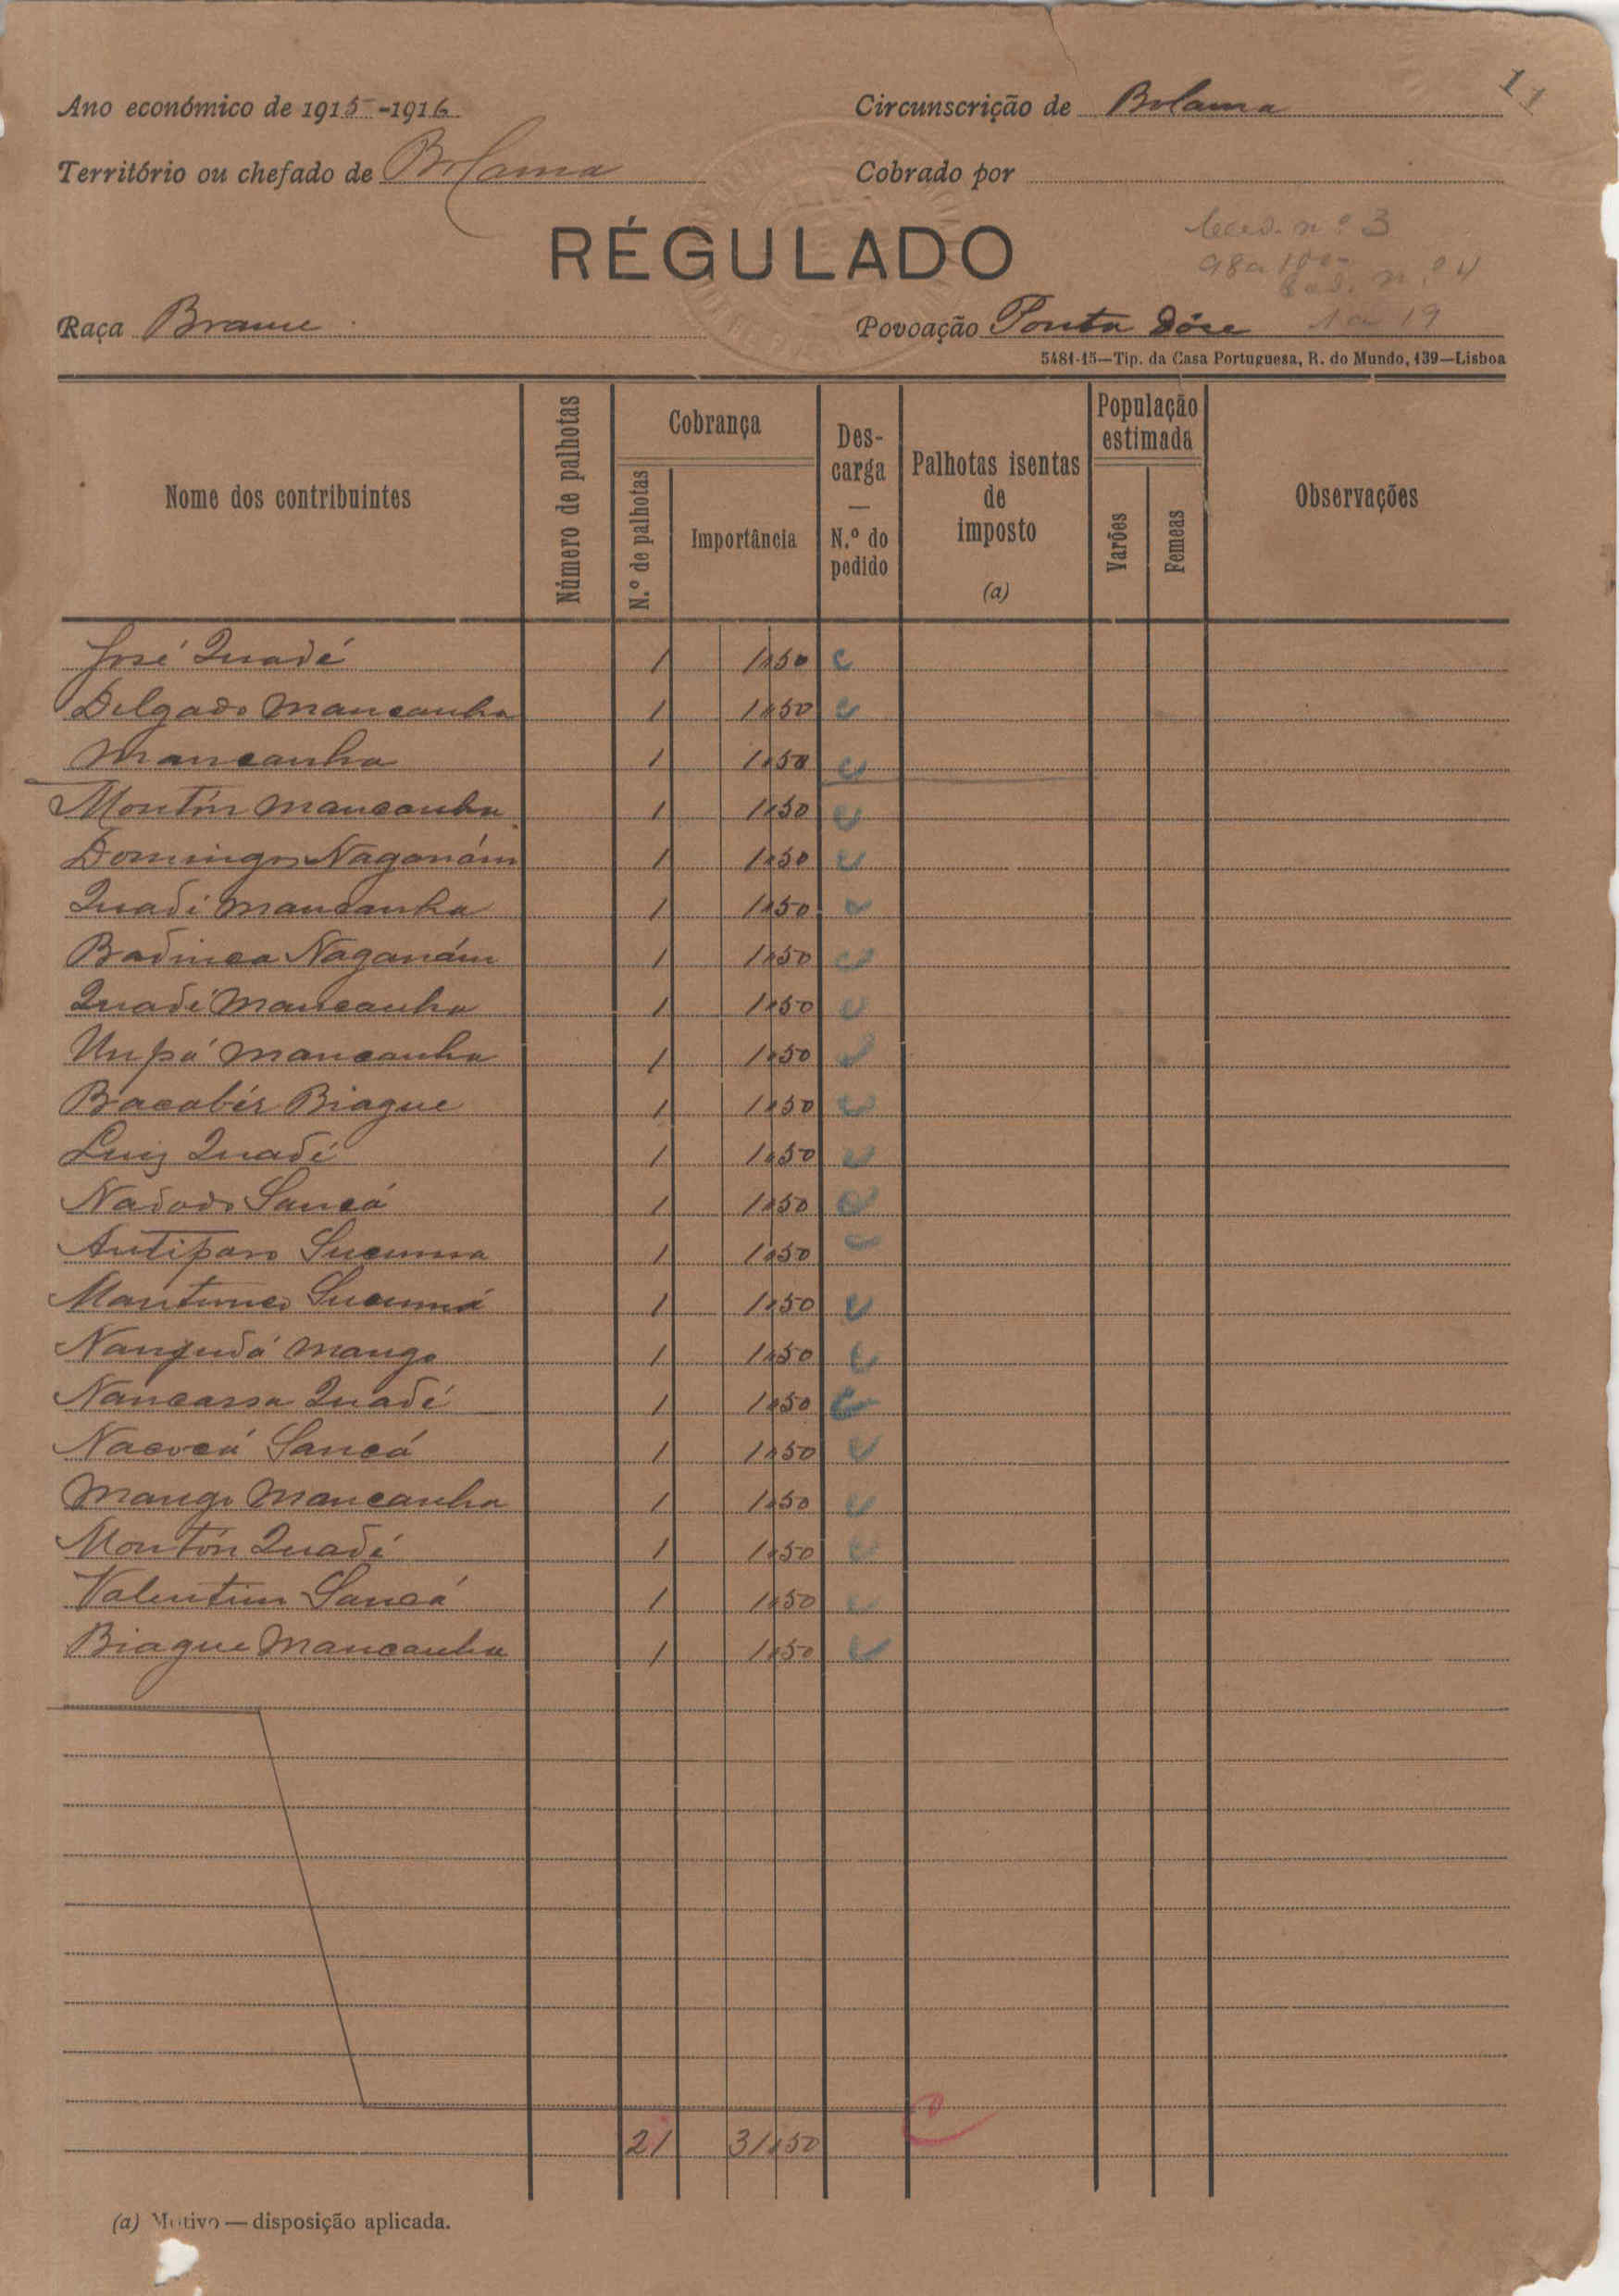 11
Ano económico de 1915-1916 Circunscrição de Bolama
Território ou chefado de Bolama Cobrado por
RÉGULADO
nº 3
98 a
nº 4
Raça Brame Povoação Ponta 1 a 19
5481-15—Tip. da Casa Portuguesa, R. do Mundo, 139—Lisboa
Nome dos contribuintes Número de palhotas Cobrança N.º de palhotas Importância Descarga — N.º do pedido Palhotas isentas de imposto (a) População estimada Varões Femeas Observações
José Quadé 1 1$50 C
Delgado Mancanha 1 1$50 C
Mancanha 1 1$50 C
Montín Mancanha 1 1$50 C
Domingos Naganám 1 1$50 C
Quadé Mancanha 1 1$50 C
Badinca Naganám 1 1$50 C
Quadé Mancanha 1 1$50 C
Unpá Mancanha 1 1$50 C
Bacabér Biague 1 1$50 C
Luiz Quadé 1 1$50 C
Nadodo Sancá 1 1$50 C
Antiparo Sucuma 1 1$50 C
Mantunco Sucumá 1 1$50 C
Nanqudá Mango 1 1$50 C
Nancassa Quadé 1 1$50 C
Nacocá Sancá 1 1$50 C
Mango Mancanha 1 1$50 C
Montón Quadé 1 1$50 C
Valentim Sancá 1 1$50 C
Biague Mancanha 1 1$50 C
21 31$50 C
(a) Motivo — disposição aplicada.